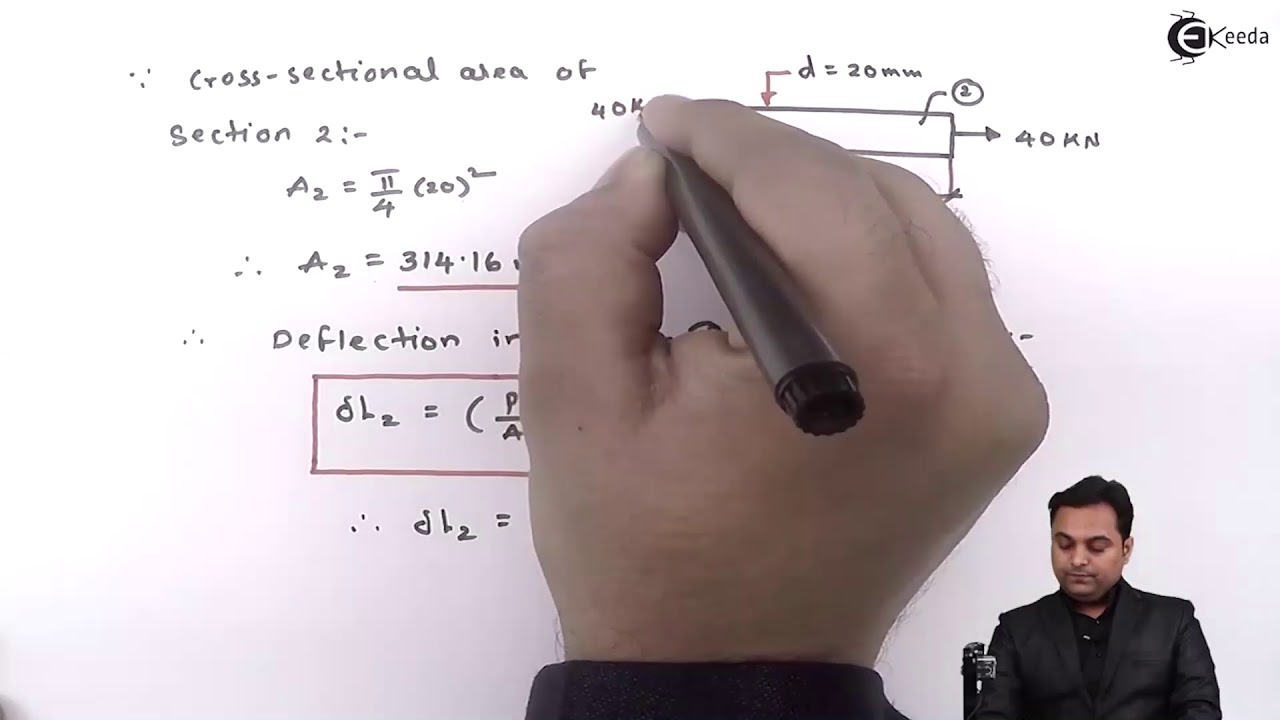 Keeda
∵ Cross-sectional area of
Section 2:-
A₂ = π/4 (20)²
∴ A₂ = 314.16
∴ Deflection
δL₂ = (P/A
∴ δL₂ =
d = 20mm
②
40K
40KN